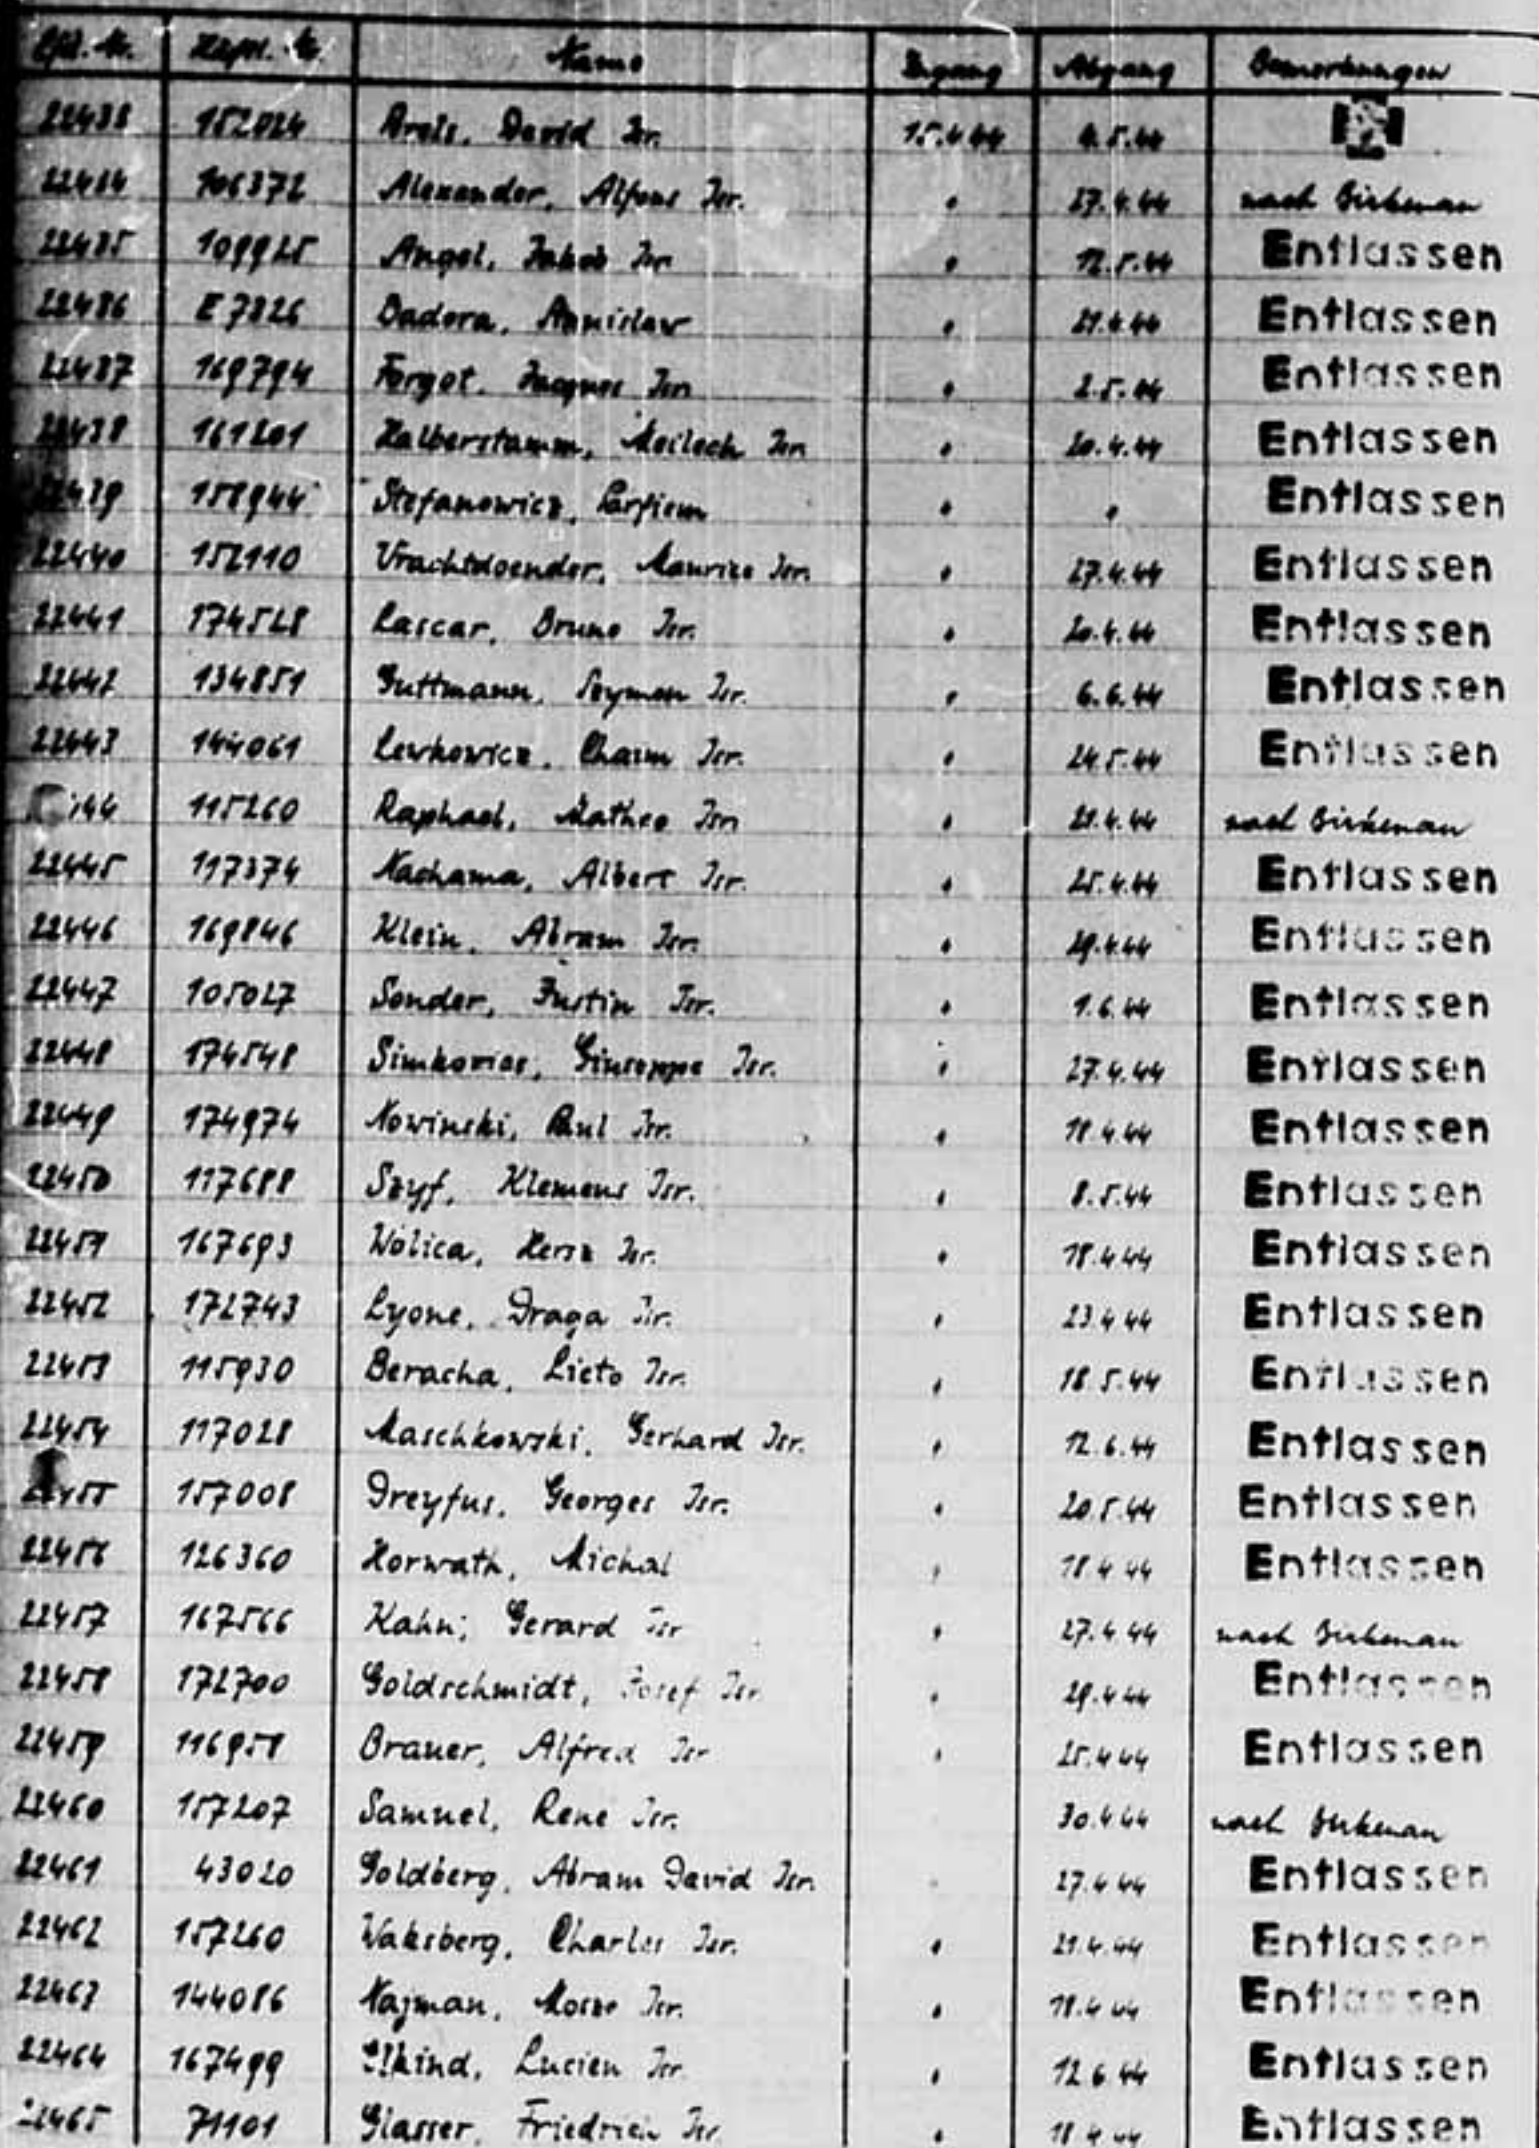 Lfd. Nr. Häftl. Nr. Name Zugang Abgang Bemerkungen
22433 152024 David Isr. 15.4.44 4.5.44
22434 106372 Alexander, Alfons Isr. " 27.4.44 nach Birkenau
22435 109925 Angel, Jakob Isr. " 12.5.44 Entlassen
22436 E 7826 " 21.4.44 Entlassen
22437 169794 Forgot, Jacques Isr. " 2.5.44 Entlassen
22438 161201 Halberstamm, Meilech Isr. " 20.4.44 Entlassen
22439 158944 Stefanowicz, " " Entlassen
22440 152110 Vrachtdoender, Maurice Isr. " 27.4.44 Entlassen
22441 174528 Lascar, Bruno Isr. " 20.4.44 Entlassen
22442 134851 Guttmann, Szymon Isr. " 6.6.44 Entlassen
22443 144061 Lewkowicz, Chaim Isr. " 24.5.44 Entlassen
44 115260 Raphael, Matheo Isr. " 21.4.44 nach Birkenau
22445 117374 Nachama, Albert Isr. " 25.4.44 Entlassen
22446 169846 Klein, Abram Isr. " 29.4.44 Entlassen
22447 105027 Sonder, Justin Isr. " 1.6.44 Entlassen
22448 174548 Giuseppe Isr. " 27.4.44 Entlassen
22449 174974 Nowinski, Paul Isr. " 18.4.44 Entlassen
22450 117688 Szyf, Klemens Isr. " 8.5.44 Entlassen
22451 167693 Wolica, Hersz Isr. " 18.4.44 Entlassen
22452 172743 Lyone, Draga Isr. " 23.4.44 Entlassen
22453 115930 Beracha, Lieto Isr. " 18.5.44 Entlassen
22454 117028 Maschkowski, Gerhard Isr. " 12.6.44 Entlassen
22455 157008 Dreyfus, Georges Isr. " 20.5.44 Entlassen
22456 126360 Horwath, Michal " 18.4.44 Entlassen
22457 167566 Kahn, Gerard Isr. " 27.4.44 nach Birkenau
22458 172700 Goldschmidt, Josef Isr. " 29.4.44 Entlassen
22459 116958 Brauer, Alfred Isr. " 25.4.44 Entlassen
22460 157207 Samuel, Rene Isr. 30.4.44 nach Birkenau
22461 43020 Goldberg, Abram David Isr. " 27.4.44 Entlassen
22462 157260 Waksberg, Charles Isr. " 21.4.44 Entlassen
22463 144086 Najman, Isr. " 18.4.44 Entlassen
22464 167499 Elkind, Lucien Isr. " 12.6.44 Entlassen
22465 71101 Glasser, Friedrich Isr. " 18.4.44 Entlassen